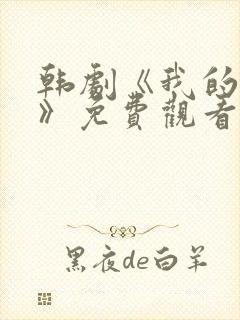 韩剧《我的
》免費觀看
黑夜de白羊